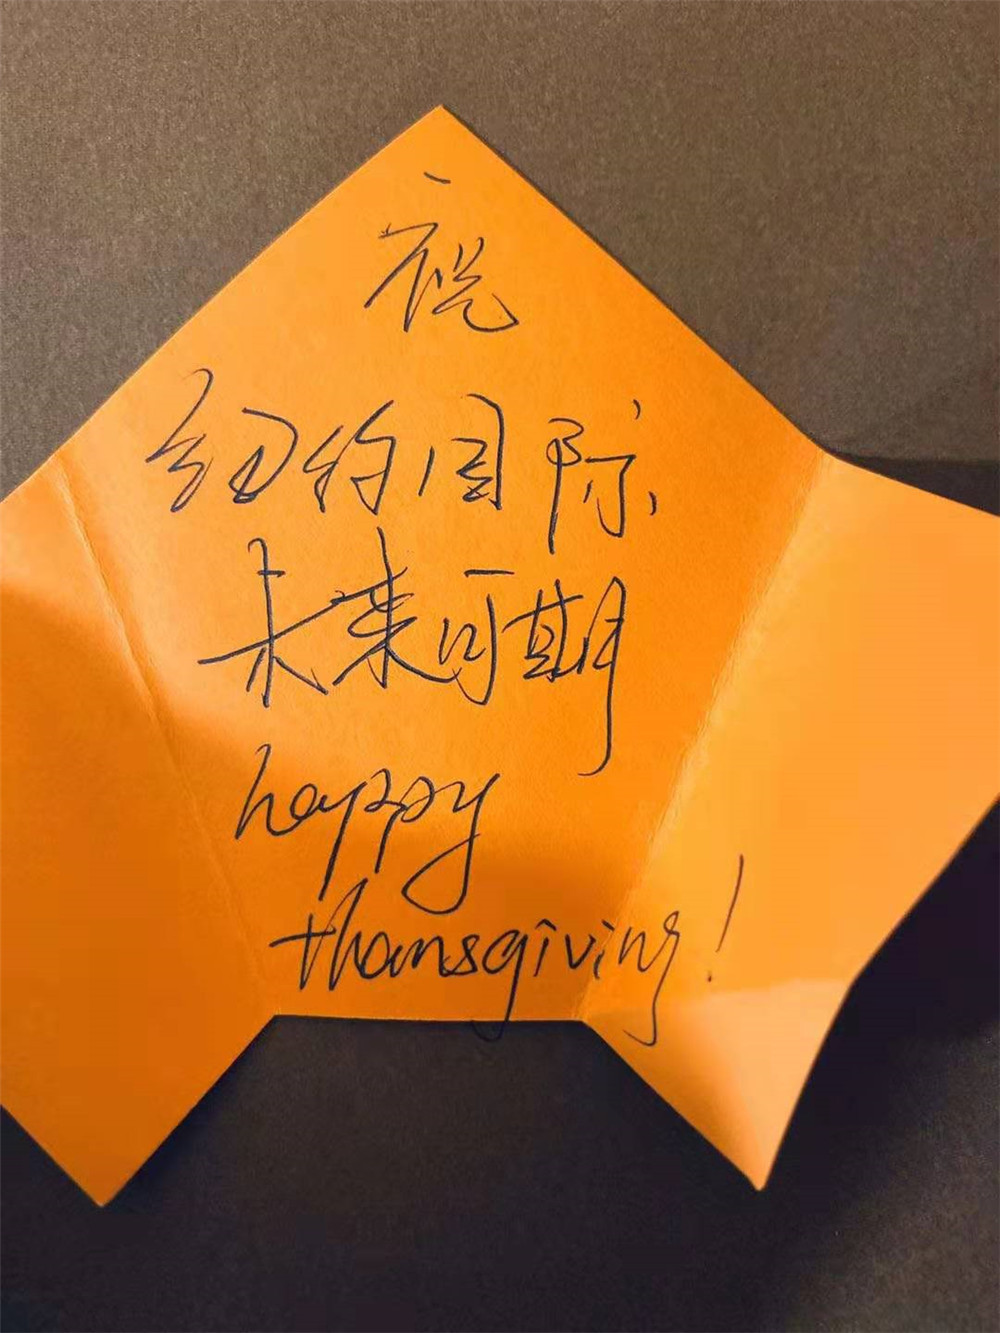 祝
纽约国际
未来可期
happy
thansgiving!